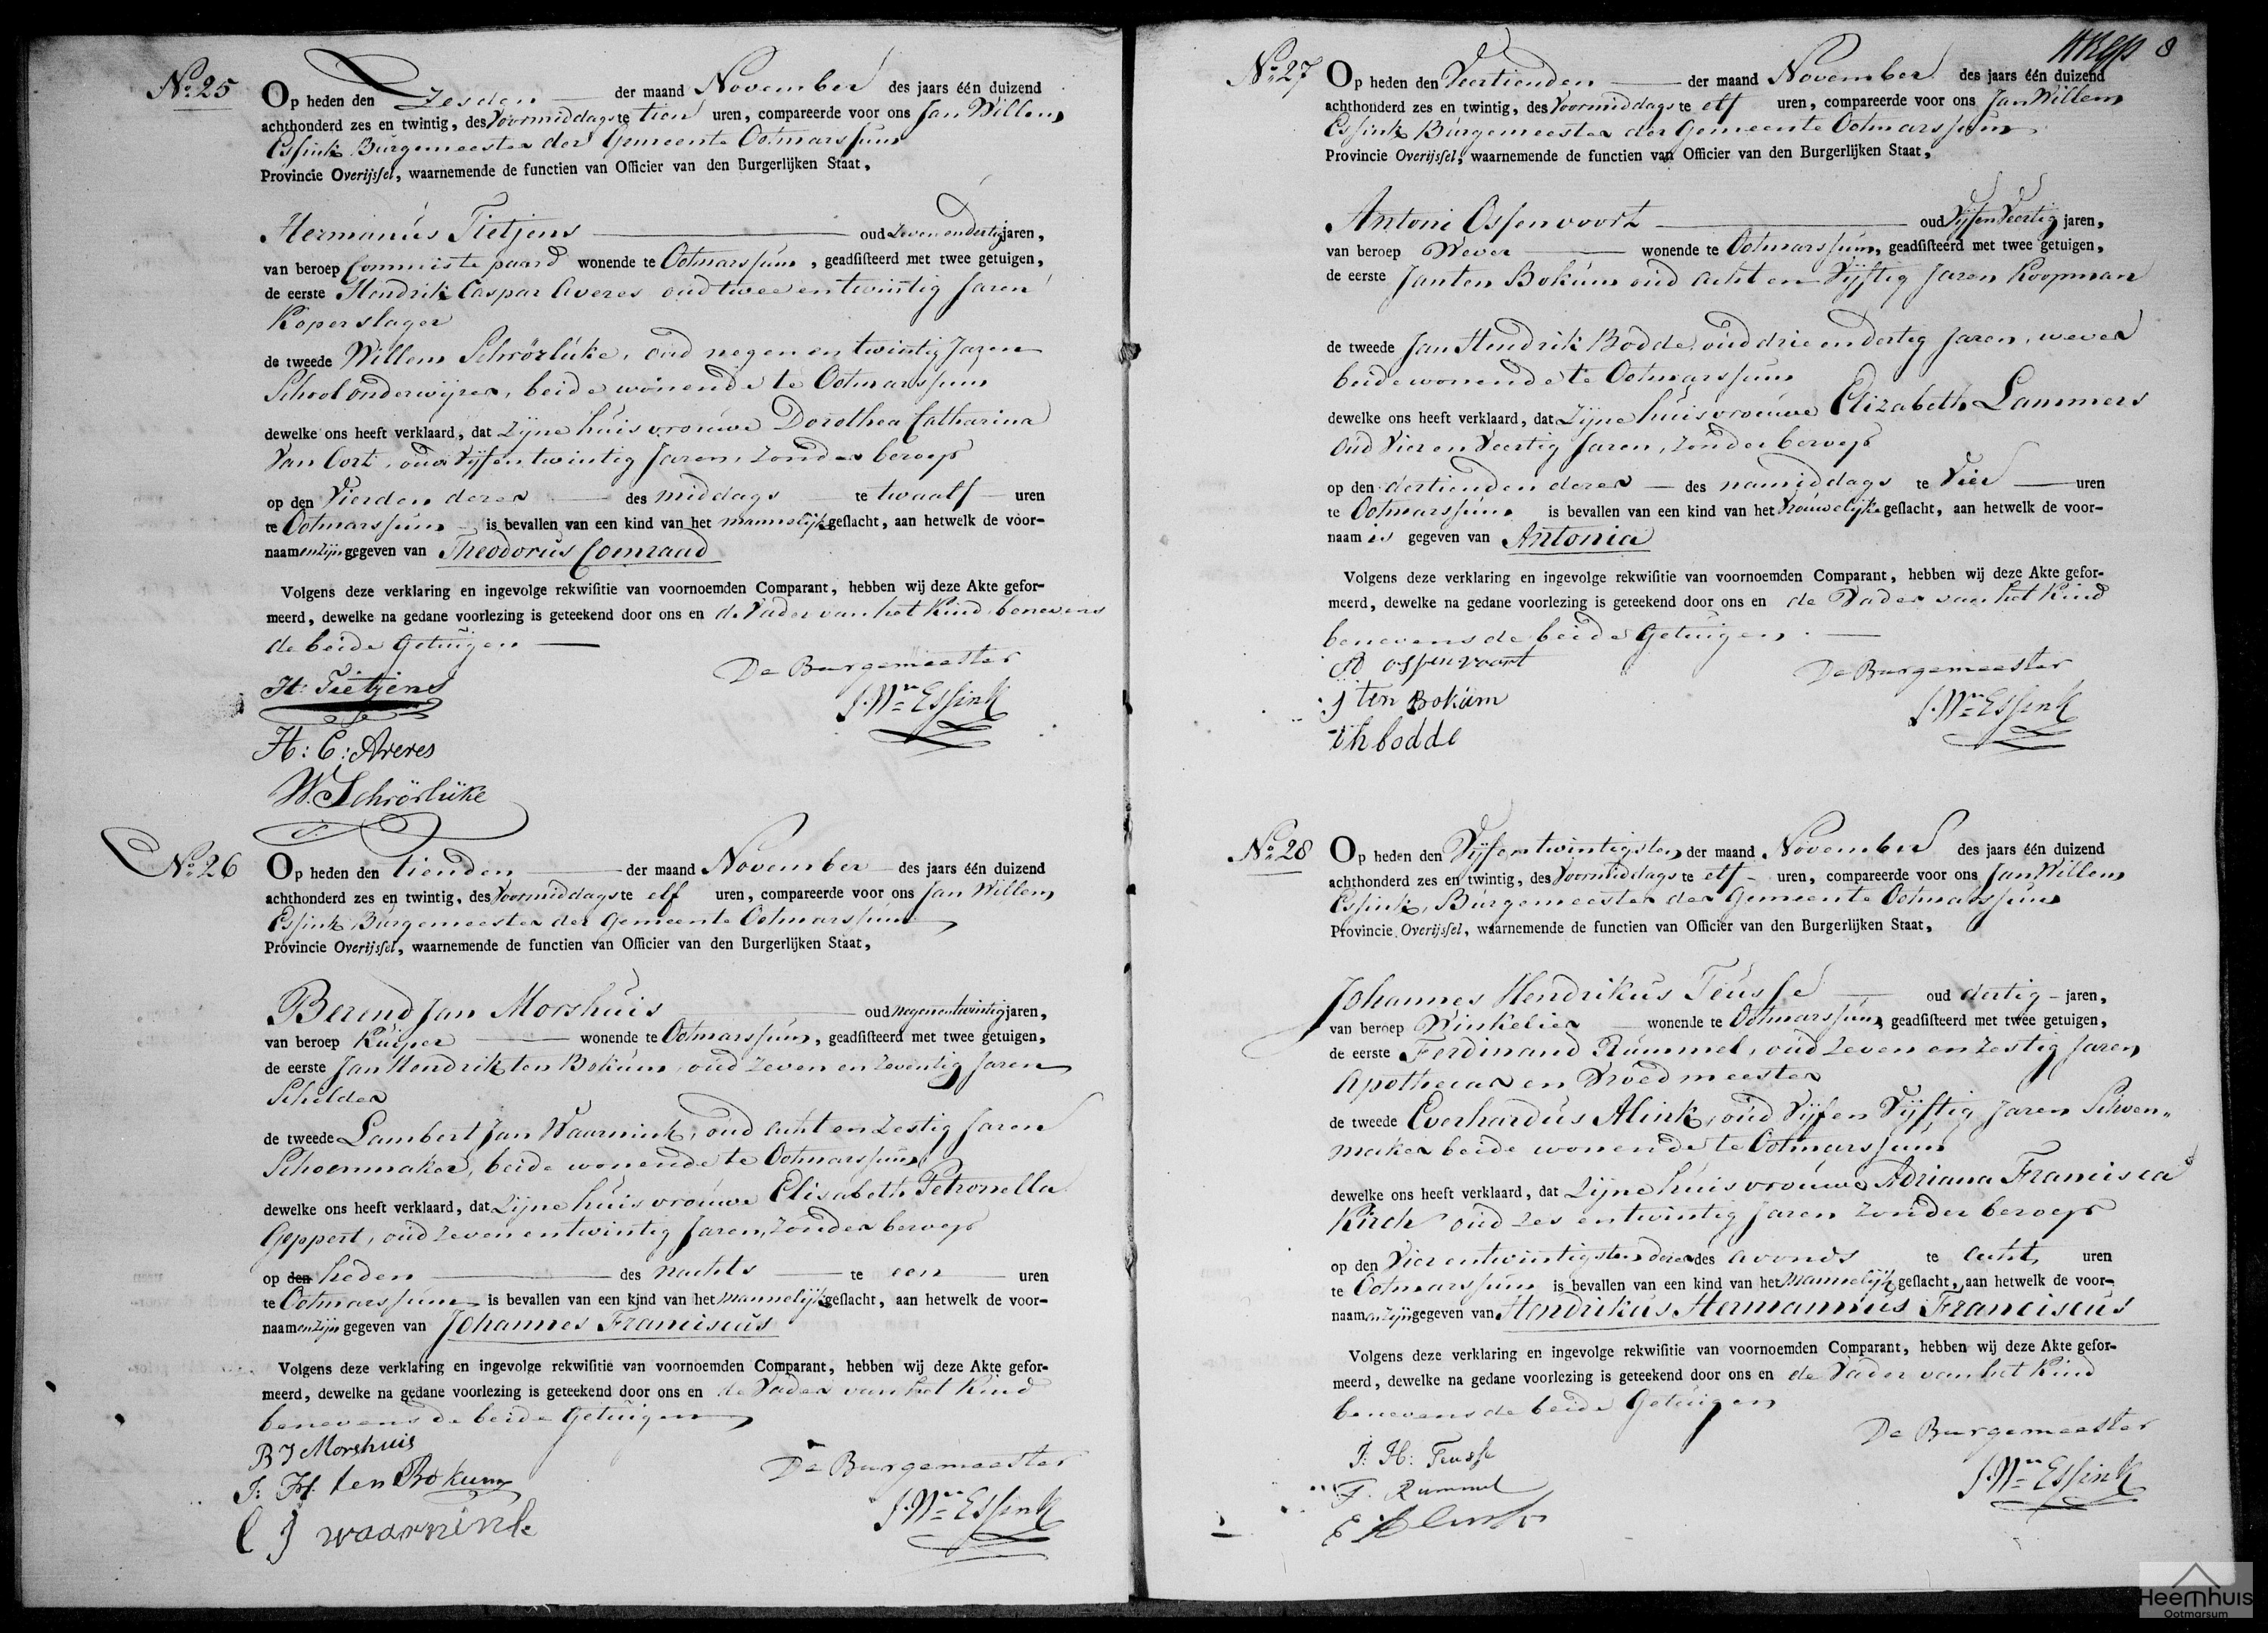 No. 25
Op heden den Zesden der maand November des jaars één duizend
achthonderd zes en twintig, des Voormiddags te tien uren, compareerde voor ons Jan Willem
Essink Burgemeester der Gemeente Ootmarssum
Provincie Overijssel, waarnemende de functien van Officier van den Burgerlijken Staat,
Hermanus Tietjens oud Zeven en dertig jaren,
van beroep Commiste paard wonende te Ootmarssum, geadsisteerd met twee getuigen,
de eerste Hendrik Caspar Averes oud twee en twintig Jaren
Koperslager
de tweede Willem Schrörlüke, oud negen en twintig Jaren
Schoolonderwijzer, beide wonende te Ootmarssum
dewelke ons heeft verklaard, dat Zijne huisvrouwe Dorothea Catharina
Van Oort, oud Vijf en twintig Jaren, Zonder beroep
op den Vierden dezer des middags te twaalf uren
te Ootmarssum is bevallen van een kind van het mannelijk geslacht, aan hetwelk de voor-
naamen zijn gegeven van Theodorus Coenraad
Volgens deze verklaring en ingevolge rekwisitie van voornoemden Comparant, hebben wij deze Akte gefor-
meerd, dewelke na gedane voorlezing is geteekend door ons en de Vader van het Kind benevens
de beide Getuigen
De Burgemeester
H: Tietjens
J. Wm Essink
H: C: Averes
W. Schrörlüke
No. 26
Op heden den tienden der maand November des jaars één duizend
achthonderd zes en twintig, des Voormiddags te elf uren, compareerde voor ons Jan Willem
Essink Burgemeester der Gemeente Ootmarssum
Provincie Overijssel, waarnemende de functien van Officier van den Burgerlijken Staat,
Berend Jan Morshuis oud negen en twintig jaren,
van beroep Kuiper wonende te Ootmarssum, geadsisteerd met twee getuigen,
de eerste Jan Hendrik ten Bokum, oud Zeven en Zeventig Jaren
Schilder
de tweede Lambert Jan Waarnink, oud acht en Zestig Jaren
Schoenmaker, beide wonende te Ootmarssum
dewelke ons heeft verklaard, dat Zijne huisvrouwe Elisabeth Petronella
Geppert, oud Zeven en twintig Jaren, Zonder beroep
op den heden des nachts te een uren
te Ootmarssum is bevallen van een kind van het mannelijk geslacht, aan hetwelk de voor-
naamen zijn gegeven van Johannes Franciscus
Volgens deze verklaring en ingevolge rekwisitie van voornoemden Comparant, hebben wij deze Akte gefor-
meerd, dewelke na gedane voorlezing is geteekend door ons en de Vader van het Kind
benevens de beide Getuigen
B J Morshuis
De Burgemeester
J: H. ten Bokum
J. Wm Essink
l J waarnink
8
No. 27
Op heden den Veertienden der maand November des jaars één duizend
achthonderd zes en twintig, des Voormiddags te elf uren, compareerde voor ons Jan Willem
Essink Burgemeester der Gemeente Ootmarssum
Provincie Overijssel, waarnemende de functien van Officier van den Burgerlijken Staat,
Antoni Ossenvoort oud Vijf en Veertig jaren,
van beroep Wever wonende te Ootmarssum, geadsisteerd met twee getuigen,
de eerste Jan ten Bokum oud acht en Vijftig Jaren Koopman
de tweede Jan Hendrik Bodde, oud drie en dertig Jaren, wever
beide wonende te Ootmarssum
dewelke ons heeft verklaard, dat Zijne huisvrouwe Elizabeth Lammers
oud Vier en Veertig Jaren, Zonder beroep
op den dertienden dezer des namiddags te Vier uren
te Ootmarssum is bevallen van een kind van het Vrouwelijk geslacht, aan hetwelk de voor-
naam is gegeven van Antonia
Volgens deze verklaring en ingevolge rekwisitie van voornoemden Comparant, hebben wij deze Akte gefor-
meerd, dewelke na gedane voorlezing is geteekend door ons en de Vader van het Kind
benevens de beide Getuigen
ossenvoort
De Burgemeester
j ten Bokum
J. Wm Essink
ih bodde
No. 28
Op heden den Vijf en twintigsten der maand November des jaars één duizend
achthonderd zes en twintig, des Voormiddags te elf uren, compareerde voor ons Jan Willem
Essink, Burgemeester der Gemeente Ootmarssum
Provincie Overijssel, waarnemende de functien van Officier van den Burgerlijken Staat,
Johannes Hendrikus Teusse oud dertig jaren,
van beroep Winkelier wonende te Ootmarssum, geadsisteerd met twee getuigen,
de eerste Ferdinand Rummel, oud Zeven en Zestig Jaren
Apothecar en Vroedmeester
de tweede Everhardus Alink, oud Vijf en Vijftig Jaren Schoen„
maker beide wonende te Ootmarssum
dewelke ons heeft verklaard, dat Zijne huisvrouwe Adriana Francisca
Kirch oud Zes en twintig Jaren Zonder beroep
op den Vier en twintigsten dezer des avonds te acht uren
te Ootmarssum is bevallen van een kind van het Mannelijk geslacht, aan hetwelk de voor-
naamen zijn gegeven van Hendrikus Hermannus Franciscus
Volgens deze verklaring en ingevolge rekwisitie van voornoemden Comparant, hebben wij deze Akte gefor-
meerd, dewelke na gedane voorlezing is geteekend door ons en de Vader van het Kind
benevens de beide Getuigen
De Burgemeester
J: H: Teusse
J. Wm Essink
F. Rummel
Heemhuis
Ootmarsum